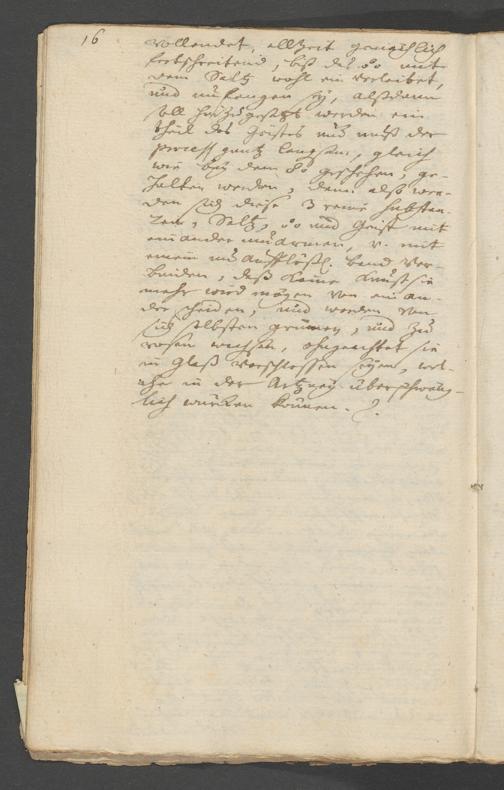 16
vollendet, allzeit gemächlich
fortschreitend, biß das oo mit
dem Saltz wohl ein verleibet,
und umfangen sey, alßdann
soll hinzugesetzt werden ein
theil des Geistes und muß der
process gantz langsam, gleich
wie bey dem oo geschehen, ge-
halten werden, dann also wer-
den sich diese 3 reine substan-
zen, Saltz, oo und Geist mit
einander umarmen, v. mit
einem unauflößl. band ver-
binden, daß keine Kunst sie
mehr wird mögen von einan-
der scheiden, und werden von
sich selbsten grünen, und zu
rosen wachsen, ohngeachtet sie
in Glaß verschlossen seyen, wel-
che in der Artzney überschweng-
lich würcken können.